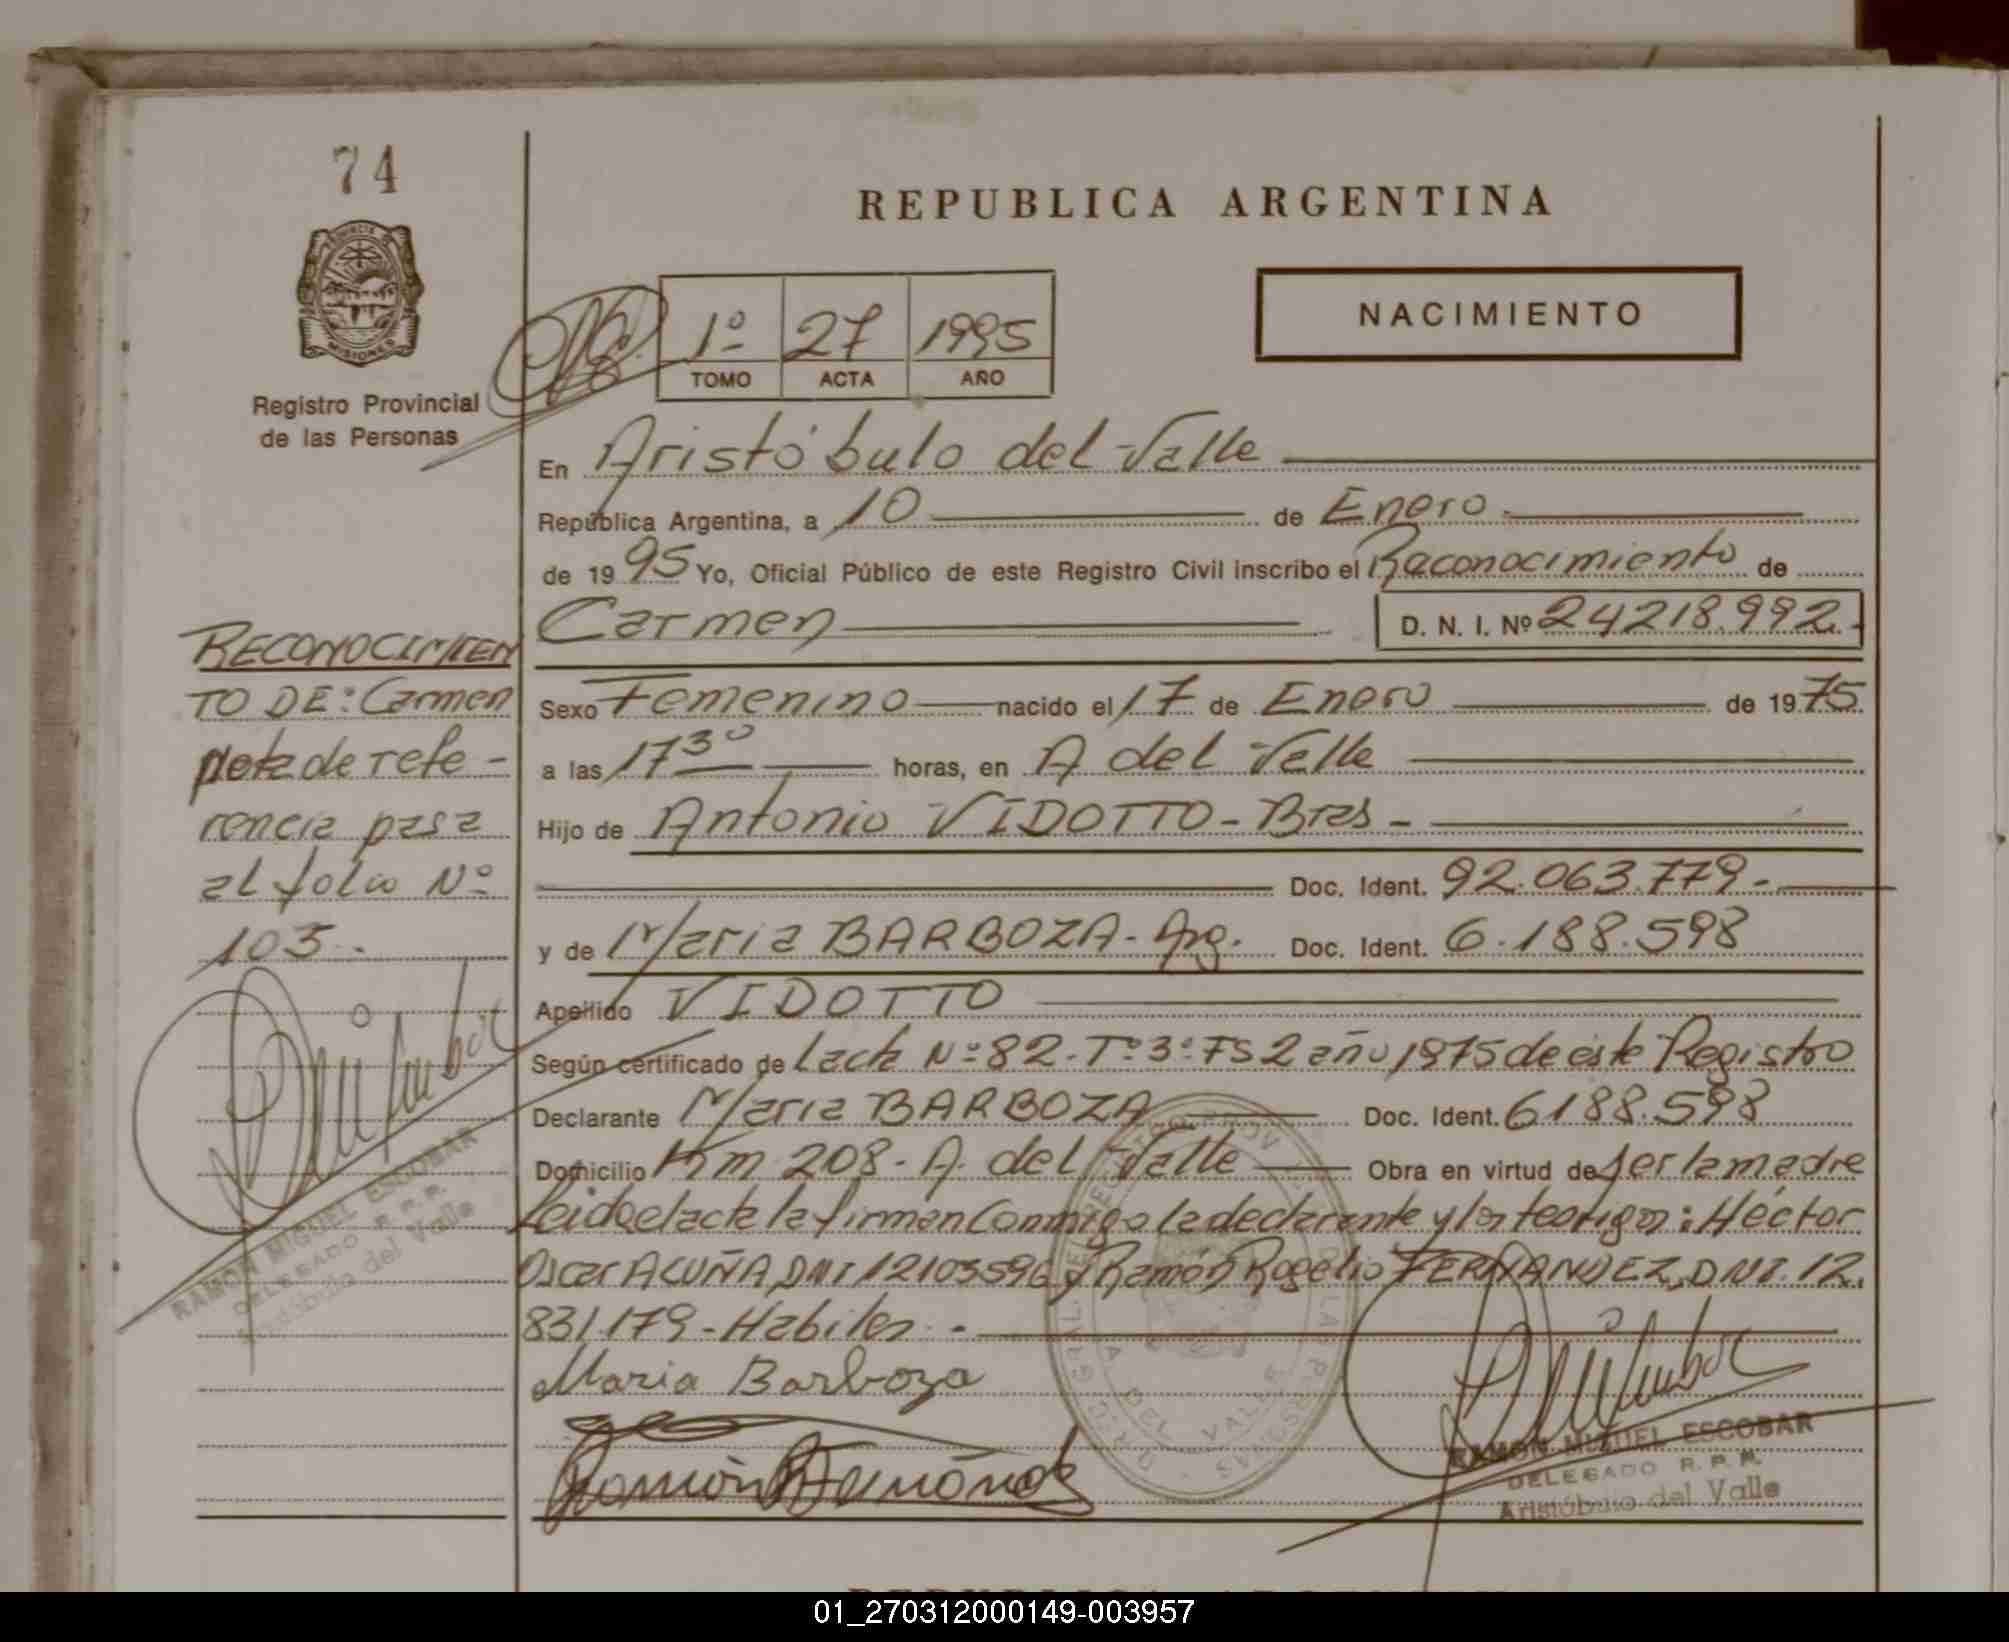 74
REPUBLICA ARGENTINA
PROVINCIA DE
MISIONES
Registro Provincial
de las Personas
1º 27 1995
TOMO ACTA AÑO
NACIMIENTO
En Aristóbulo del Valle
República Argentina, a 10 de Enero
de 1995 Yo, Oficial Público de este Registro Civil inscribo el Raconocimiento de
Carmen D. N. I. Nº 24218.992.-
Sexo Femenino nacido el 17 de Enero de 1975
a las 17 30 horas, en A del Valle
Hijo de Antonio VIDOTTO - Bras -
Doc. Ident. 92.063.779-
y de Maria BARBOZA - Arg. Doc. Ident. 6.188.598
Apellido VIDOTTO
Según certificado de L'acta Nº 82. Tº 3º FS 2 año 1975 de éste Registro
Declarante Maria BARBOZA Doc. Ident. 6188.598
Domicilio Km 208 - A. del Valle Obra en virtud de ser la madre
Leido el acta la firman Conmigo la declarante y los testigos: Héctor
Oscar ACUÑA, DNI 12105596 y Ramón Rogelio FERNANDEZ, DNI. 12.
831.179 - Habiles. -
Maria Barboza
Ramón Fernández
RAMON MIGUEL ESCOBAR
DELEGADO R. P. P.
Aristóbulo del Valle
RECONOCIMIEN
TO DE: Carmen
nota de refe -
rencia pasa
al folio Nº
103 -
RAMON MIGUEL ESCOBAR
DELEGADO R. P. P.
Aristóbulo del Valle
DE LAS PERSONAS
A DEL VALLE
01_270312000149-003957